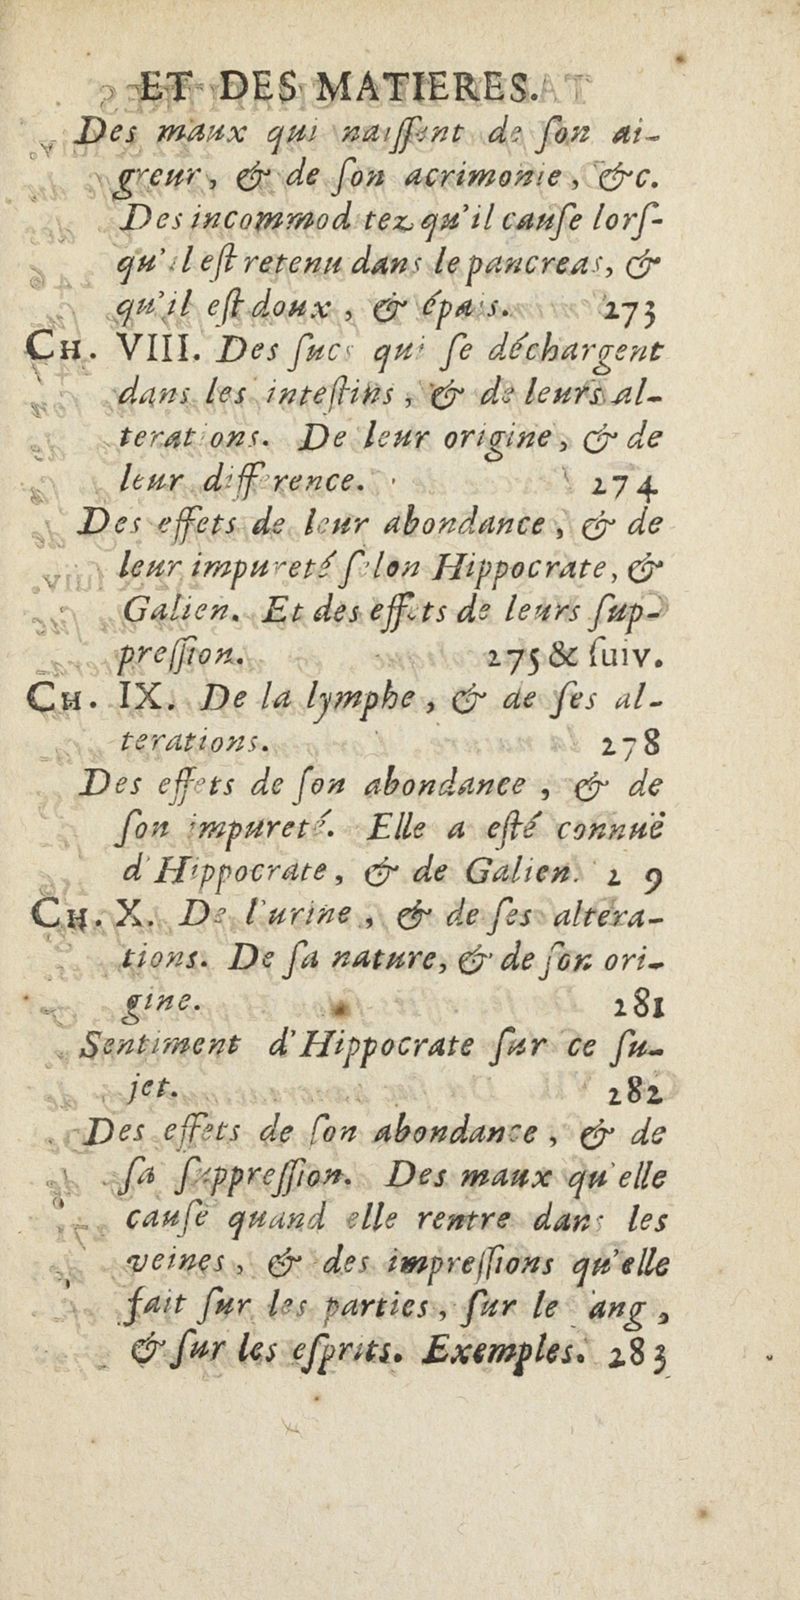 ET DES MATIERES.
Des maux qui naiſſent de ſon ai-
greur, & de ſon acrimonie, &c.
Des incommod tez qu'il cauſe lorſ-
qu' il eſt retenu dans le pancreas, &
qu'il eſt doux, & épais. 273
CH. VIII. Des ſucs qui ſe déchargent
dans les inteſtins, & de leurs al-
terations. De leur origine, & de
leur difference. 274
Des effets de leur abondance, & de
leur impureté ſelon Hippocrate, &
Galien. Et des effets de leurs ſup-
preſſion. 275 & ſuiv.
CH. IX. De la lymphe, & de ſes al-
terations. 278
Des effets de ſon abondance, & de
ſon impureté. Elle a eſté connuë
d'Hippocrate, & de Galien. 2 9
CH. X. De l'urine, & de ſes altera-
tions. De ſa nature, & de ſon ori-
gine. 281
Sentiment d'Hippocrate ſur ce ſu-
jet. 282
Des effets de ſon abondance, & de
ſa ſuppreſſion. Des maux qu'elle
cauſe quand elle rentre dans les
veines, & des impreſſions qu'elle
fait ſur les parties, ſur le ang,
& ſur les eſprits. Exemples. 283